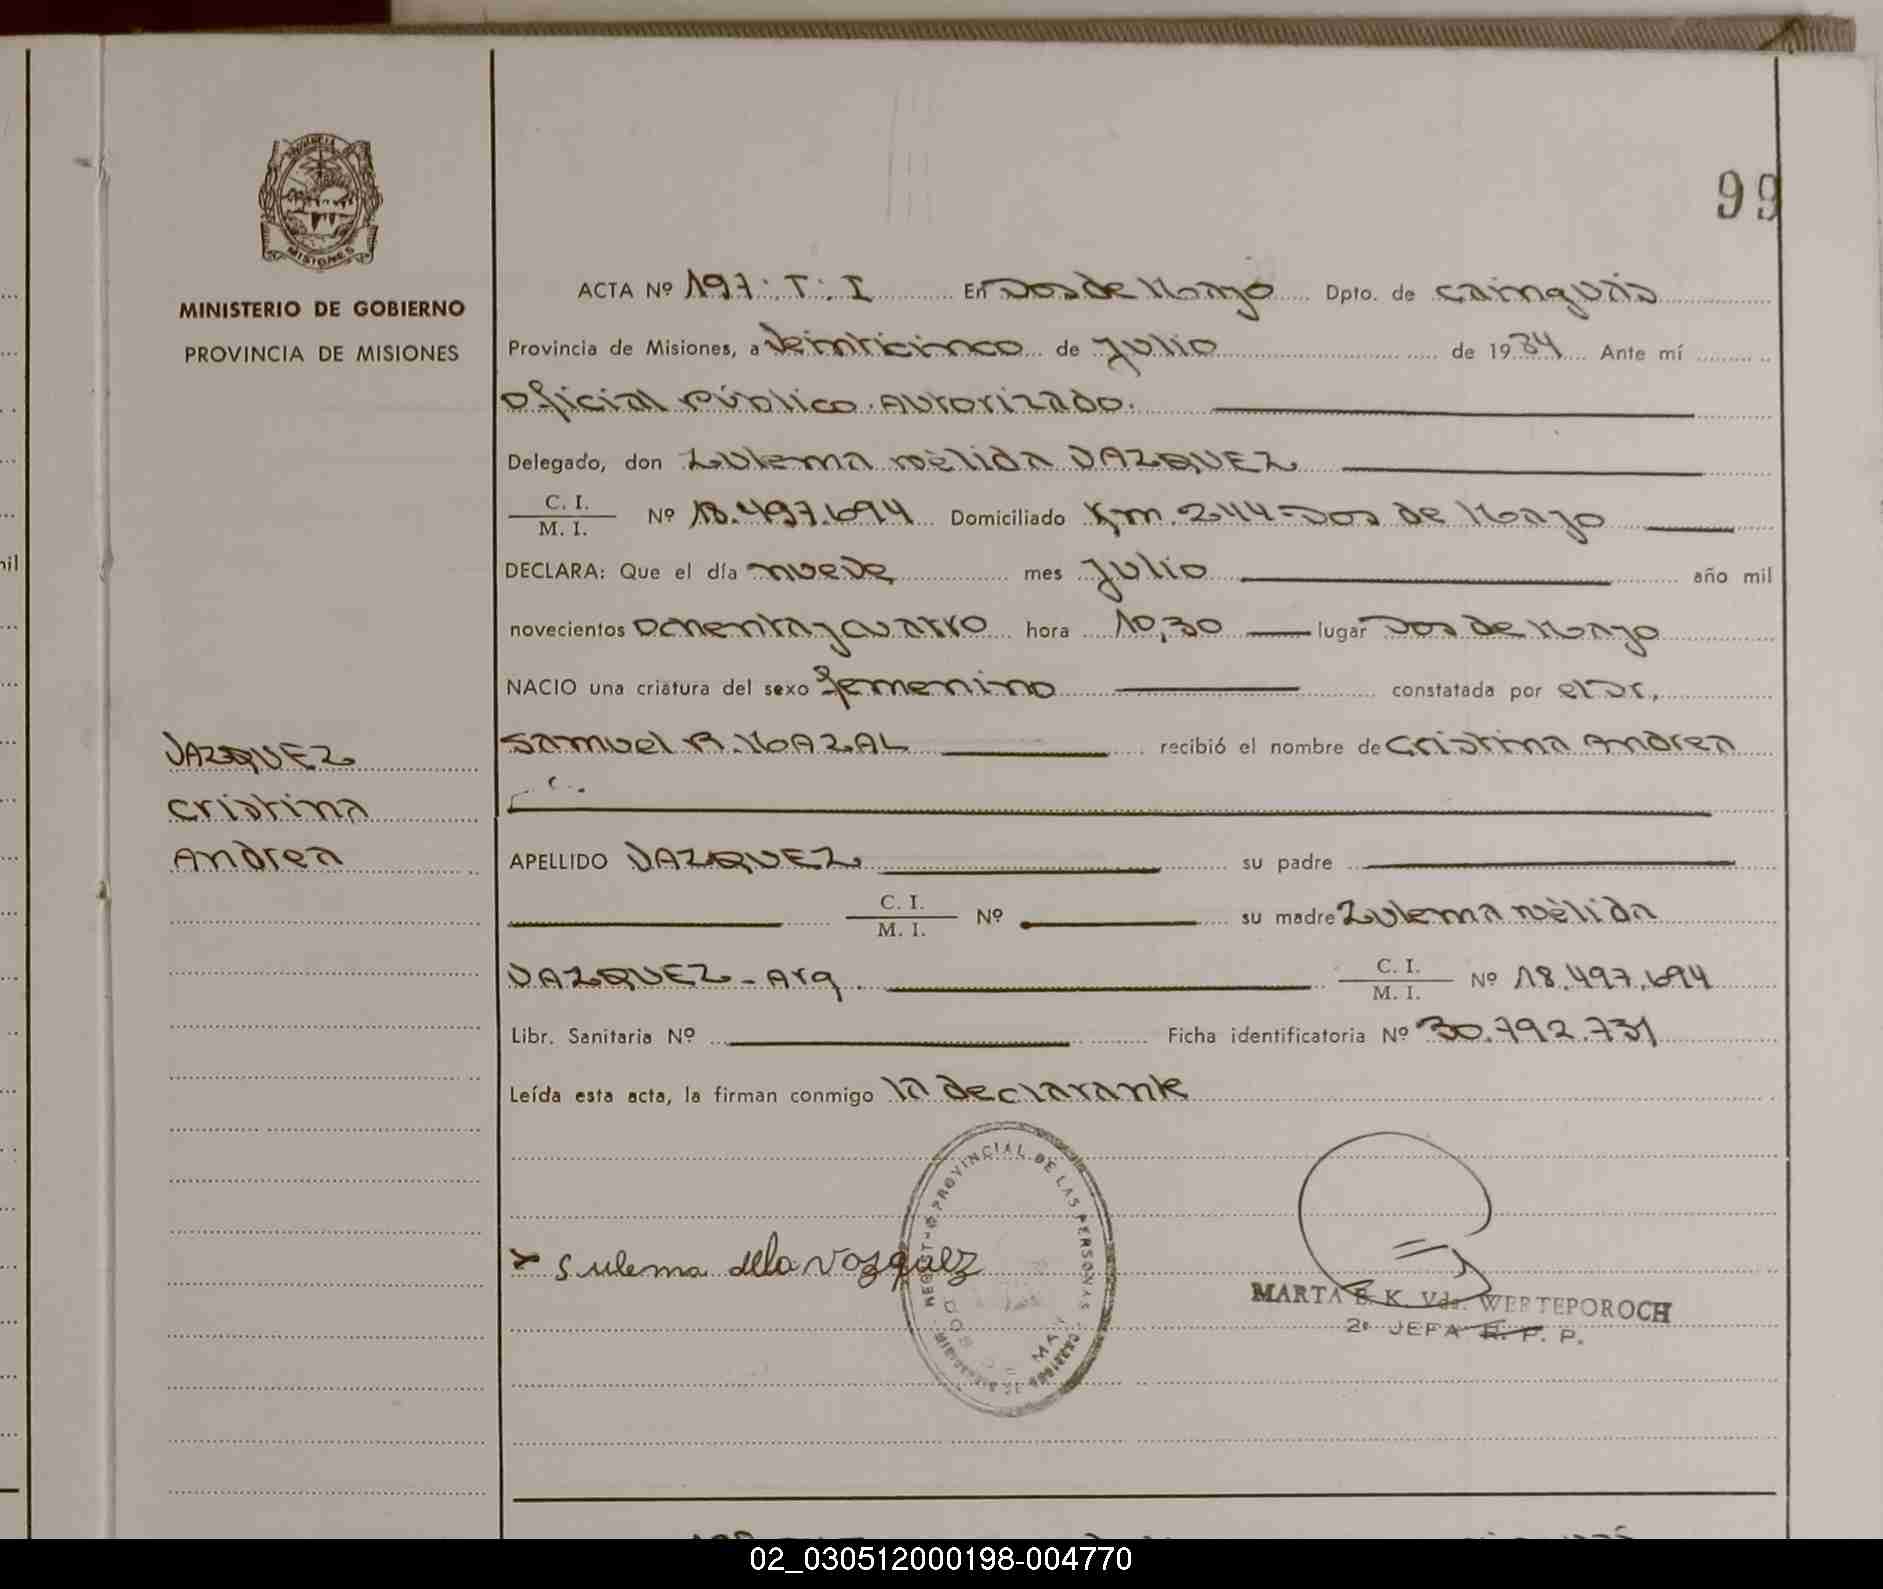 99
MINISTERIO DE GOBIERNO
PROVINCIA DE MISIONES
ACTA Nº 197: T: I En Dos de Mayo Dpto. de Cainguás
Provincia de Misiones, a Veinticinco de Julio de 1984 Ante mí
Oficial Público Autorizado.
Delegado, don Zulema Nèlida VAZQUEZ
C. I.
M. I. Nº 18.497.694 Domiciliado Km. 244-Dos de Mayo
DECLARA: Que el día nueve mes Julio año mil
novecientos Ochentaycuatro hora 10,30 lugar Dos de Mayo
NACIO una criatura del sexo femenino constatada por el Dr,
Samuel R. MOAZAL recibió el nombre de Cristina Andrea
VAZQUEZ
Cristina
Andrea
APELLIDO VAZQUEZ su padre
C. I.
M. I. Nº su madre Zulema Nèlida
VAZQUEZ - Arg. C. I.
M. I. Nº 18.497.694
Libr. Sanitaria Nº Ficha identificatoria Nº 30.792.731
Leída esta acta, la firman conmigo la declarante
Sulema Vazquez
PROVINCIAL DE LAS PERSONAS
MARTA E. K. Vda. WERTEPOROCH
2º JEFA R. P. P.
02_030512000198-004770